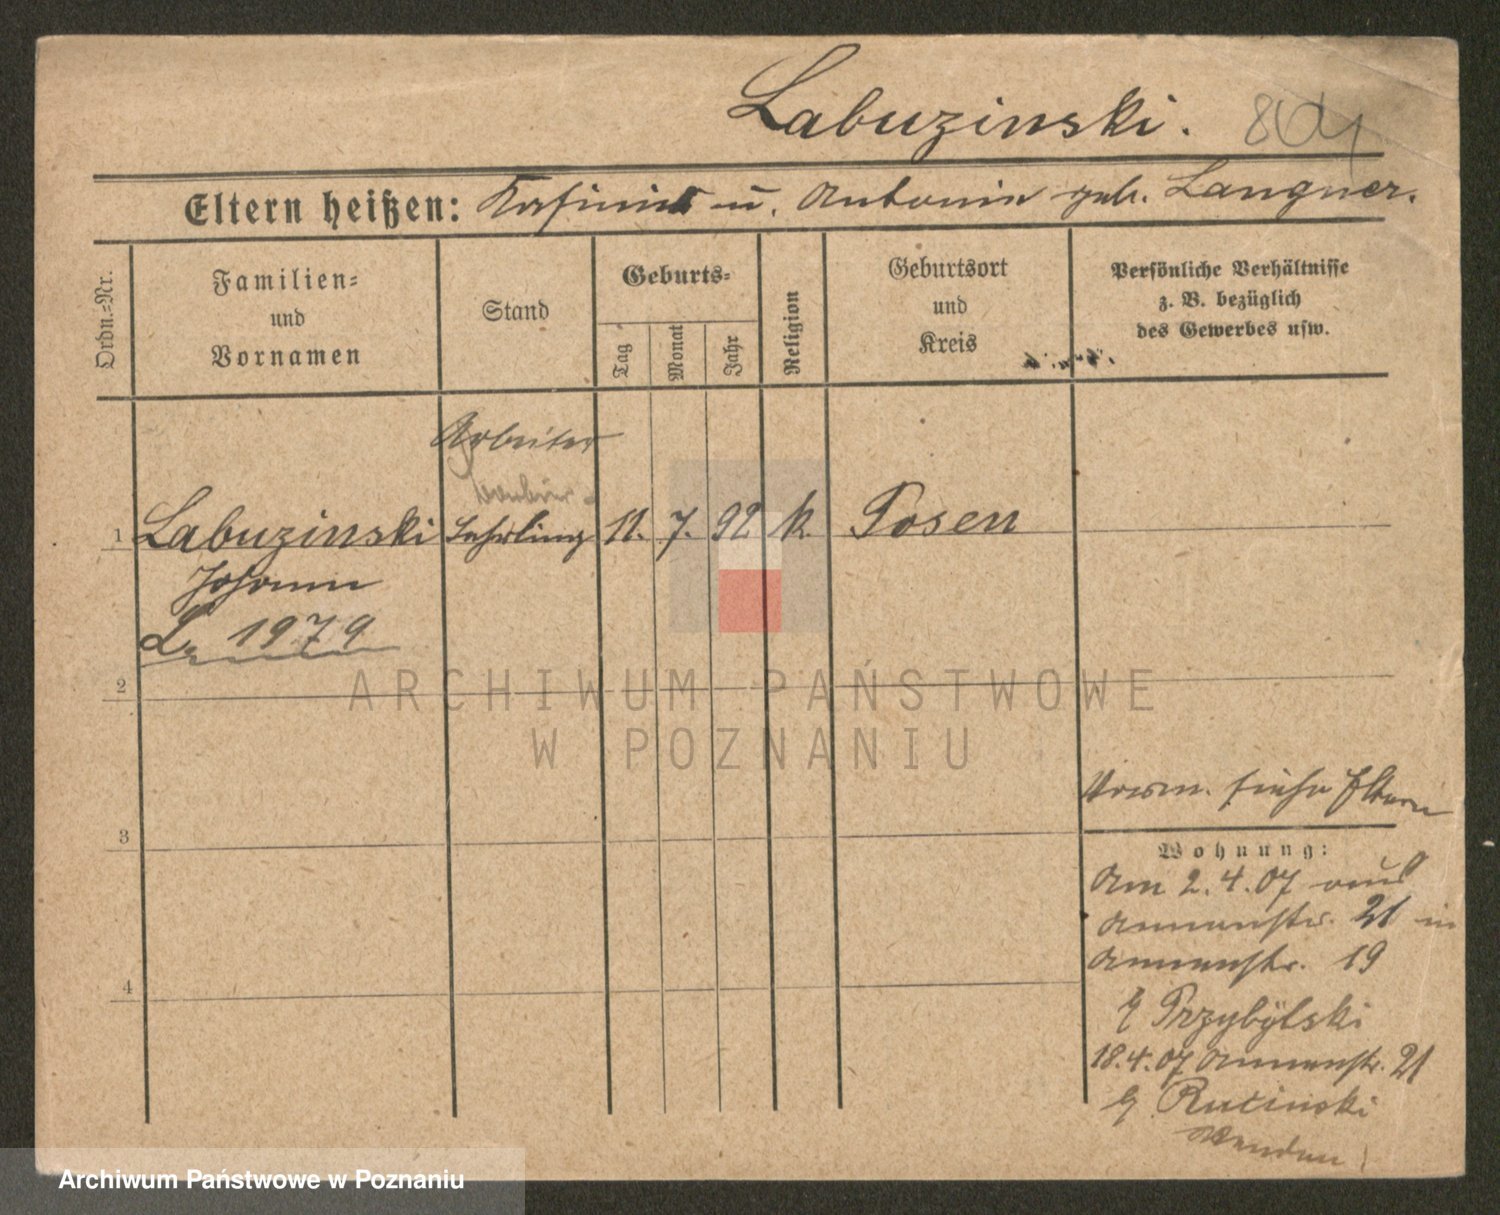 Labuzinski.
Eltern heißen: Kasimir u. Antonie geb. Langner.
Ordn.-Nr.
Familien- und Vornamen
Stand
Geburts-
Tag
Monat
Jahr
Religion
Geburtsort und Kreis
Persönliche Verhältnisse z. B. bezüglich des Gewerbes usw.
Arbeiter
1 Labuzinski Lehrling 11. 7. 92 k. Posen
Johann
L. 1979
2
3
4
ARCHIWUM PAŃSTWOWE
W POZNANIU
siehe Eltern
Wohnung:
Am 2.4.07 aus
Annenstr. 21 in
Annenstr. 19
Przybylski
18.4.07 Annenstr. 21
Rucinski
Wenden!
Archiwum Państwowe w Poznaniu